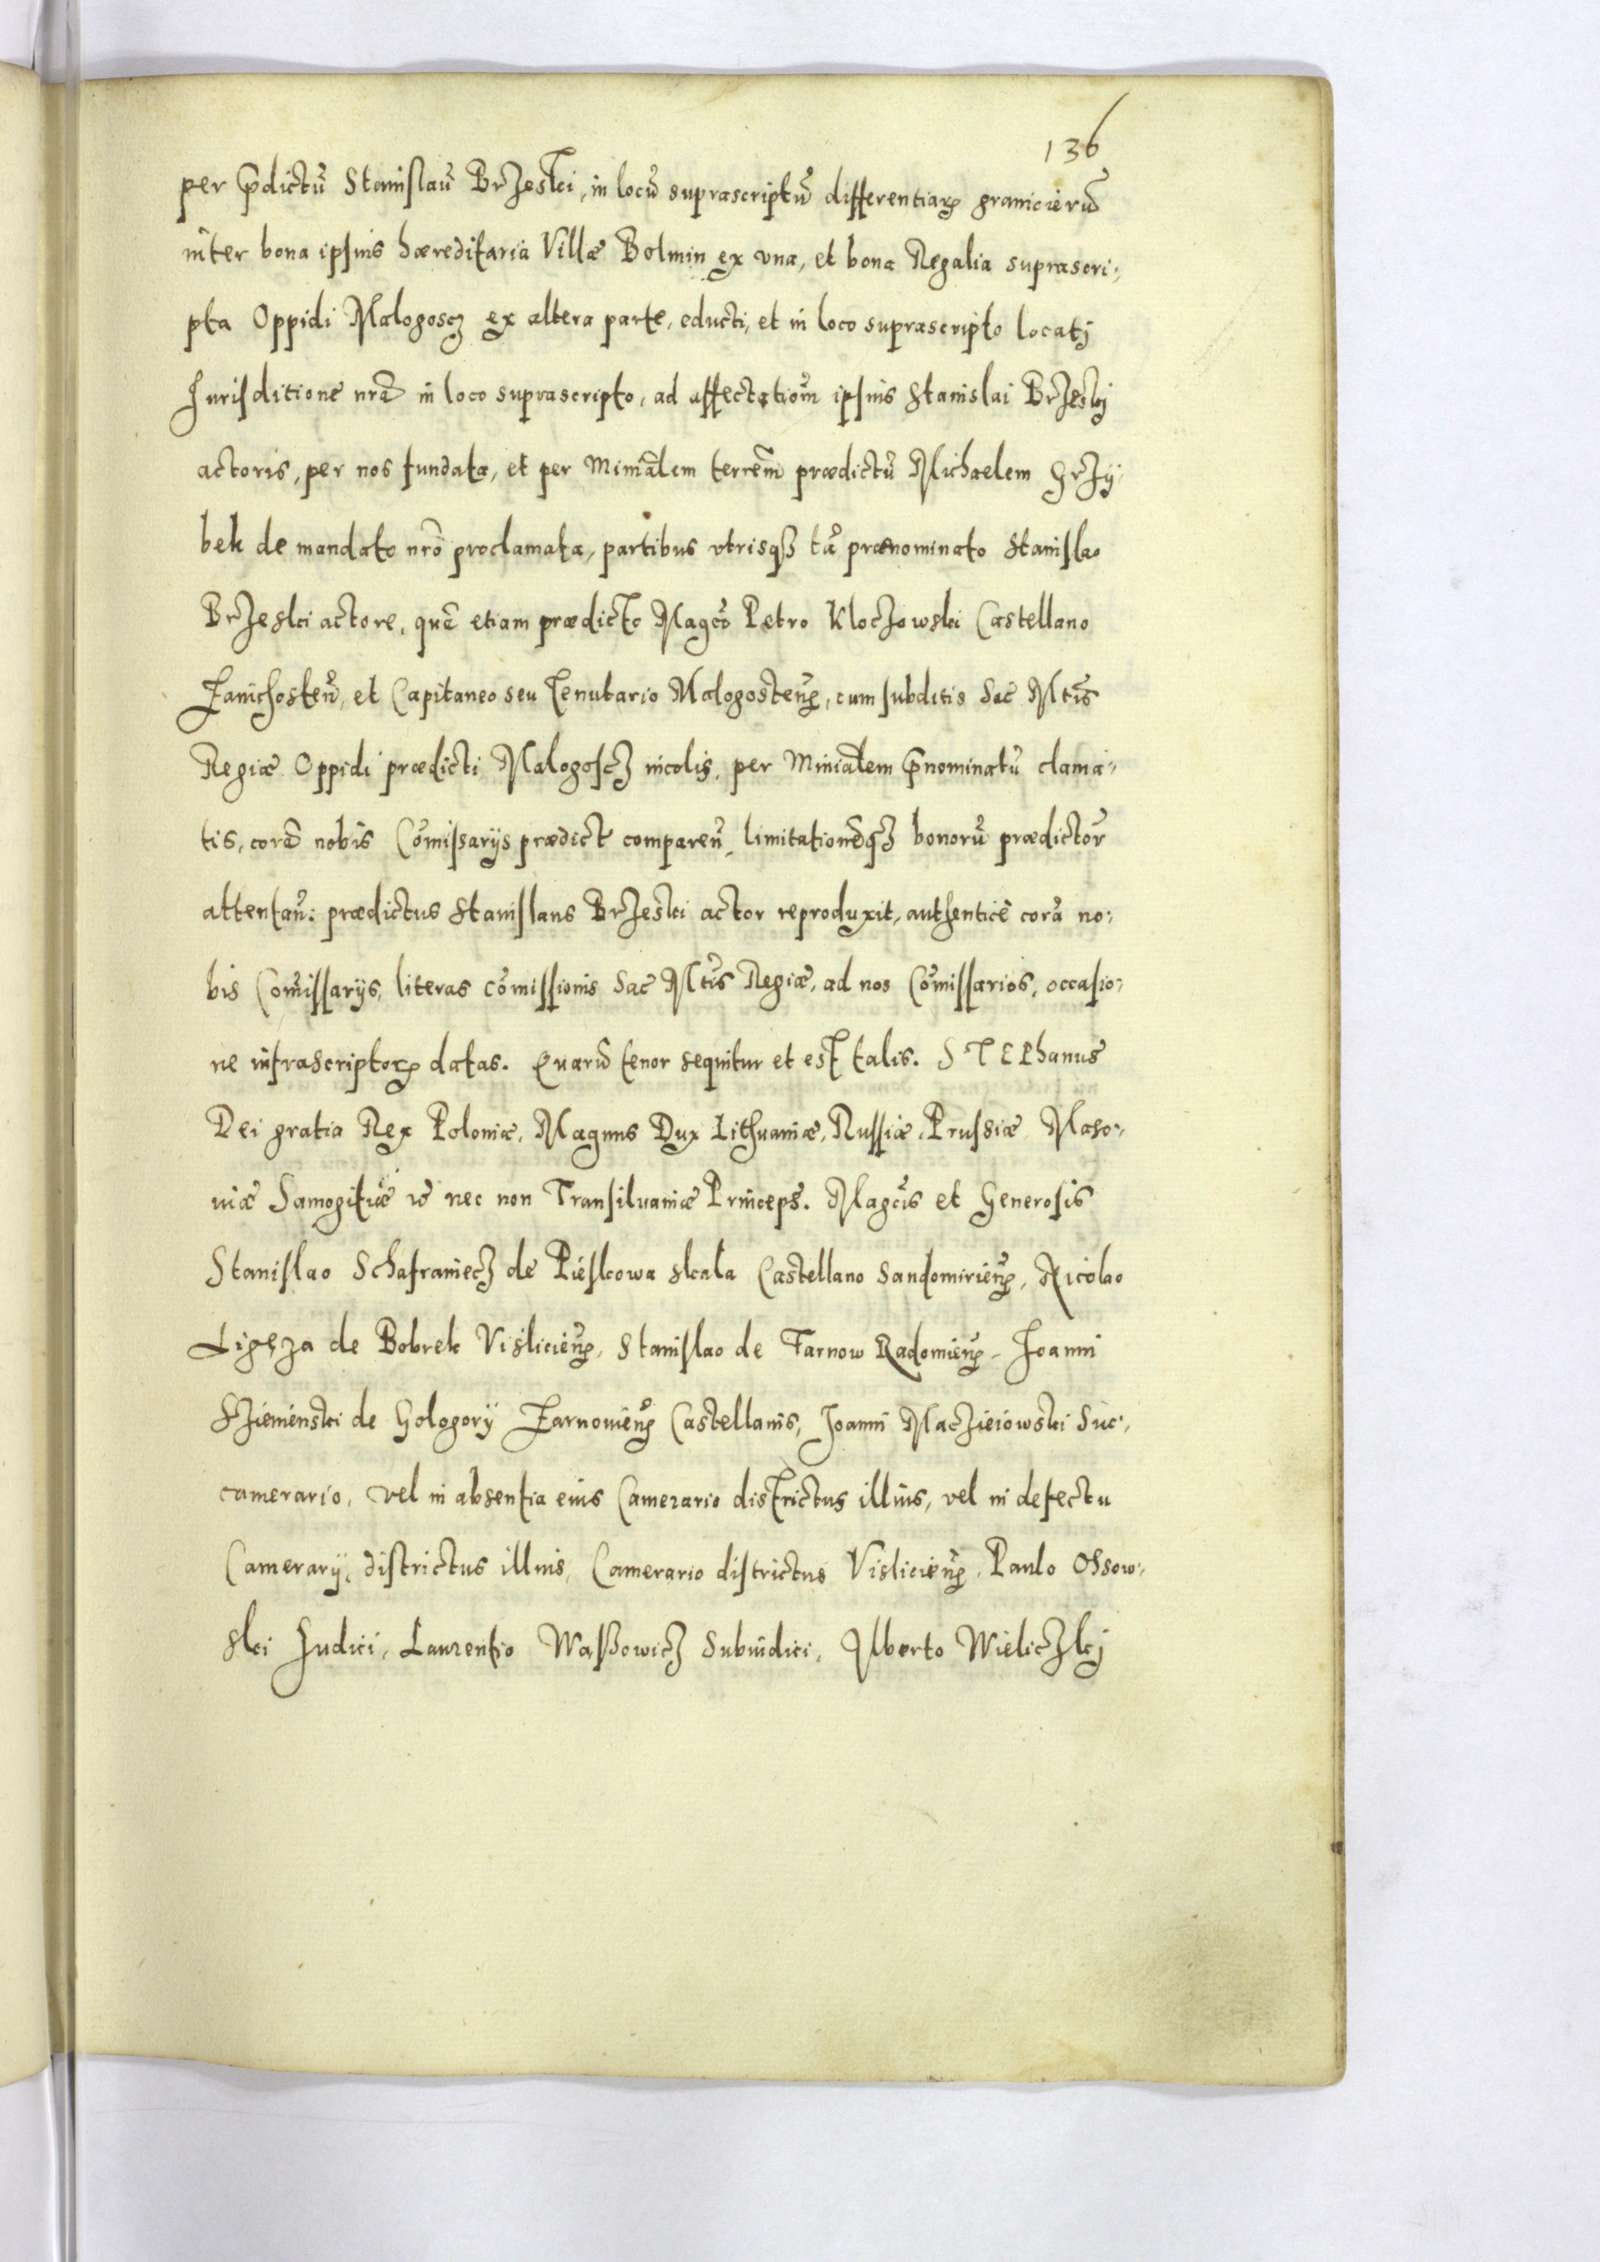 136
per p̄dictū Stanislaū Brzeski, in locū suprascriptū differentiaꝝ granicierū
inter bona ipsius hæreditaria Villæ Bolmin ex vna, et bona Regalia suprascri:
pta Oppidi Malogoscz ex altera parte, educti, et in loco suprascripto locatj
Jurisditione nr̄ā in loco suprascripto, ad affectatiōm ipsius Stanislai Brzeskj
actoris, per nos fundata, et per Minrālem terrēm prædictū Michaelem Grzy:
bek de mandato nrō proclamata, partibus vtrisqȝ tā prænominato Stanislao
Brzeski actore, quā etiam prædicto Magc̄o Petro Kloczowski Castellano
Zanichosteñ, et Capitaneo seu Tenutario Malogosteñ, cum subditis Sac Mtīs
Regiæ Oppidi prædicti Malogoscz incolis, per Miniālem p̄nominatū clama:
tis, corā nobis Cōmissarijs prædict compareñ, limitationēqȝ bonorū prædictor̄
attentañ: prædictus Stanislaus Brzeski actor reproduxit, authenticè corā no:
bis Cōmissarijs, literas cōmissionis Sac Mtīs Regiæ, ad nos Cōmissarios, occasio:
ne infrascriptoꝝ datas. Quarū tenor sequitur et est talis. STEPhanus
Dei gratia Rex Poloniæ, Magnus Dux Lithuaniæ, Russiæ, Prussiæ Maso:
uiæ Samogitiæ ꝛc nec non Transiluaniæ Princeps. Magc̄is et Generosis
Stanislao Schafraniecz de Pieskowa skala Castellano Sandomirieñ, Nicolao
Ligęza de Bobrek Vislicieñ, Stanislao de Tarnow Radomieñ, Joanni
Szieminski de Gologory Zarnouieñ Castellanis, Joanni Maczieiowski Suc:
camerario, vel in absentia eius Camerario districtus illius, vel in defectu
Camerarij, districtus illius, Camerario districtus Vislicieñ, Paulo Ossow:
ski Judici, Laurentio Waßowicz Subiudici, Alberto Wieliczkj